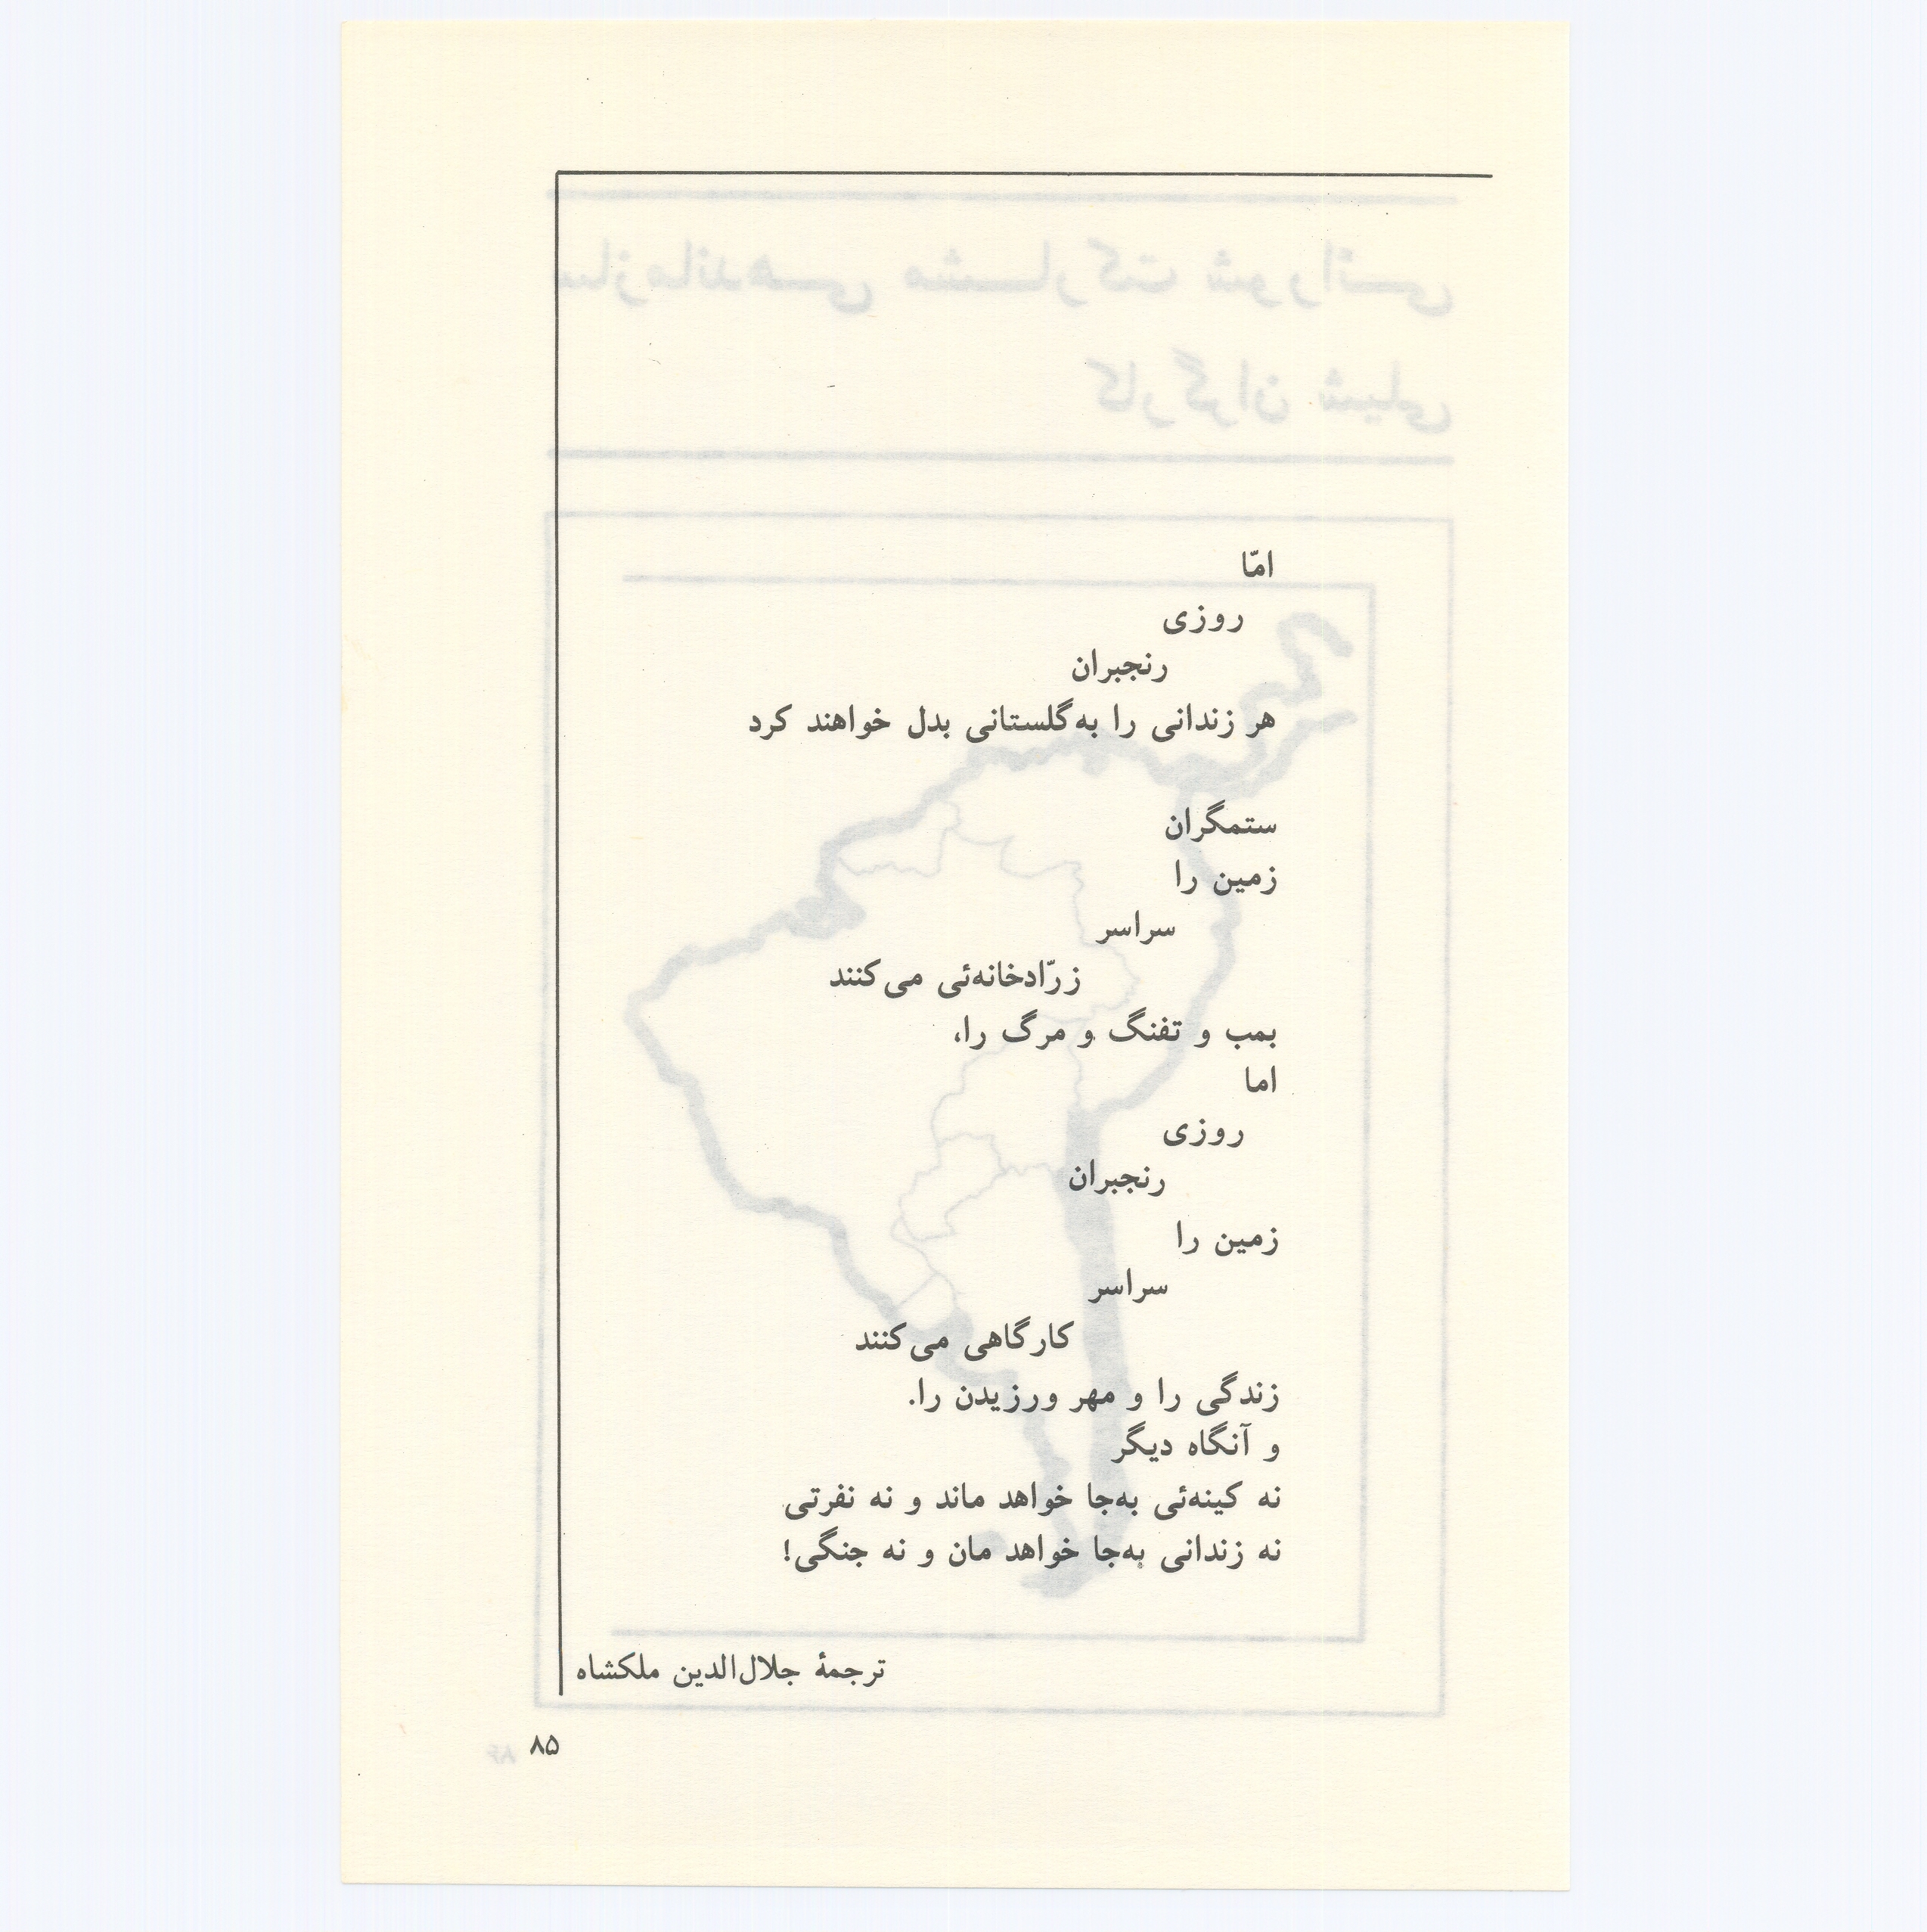 امّا
روزی
رنجبران
هر زندانی را به‌گلستانی بدل خواهند کرد
ستمگران
زمین را
سراسر
زرّادخانه‌ئی می‌کنند
بمب و تفنگ و مرگ را،
اما
روزی
رنجبران
زمین را
سراسر
کارگاهی می‌کنند
زندگی را و مهر ورزیدن را.
و آنگاه دیگر
نه کینه‌ئی به‌جا خواهد ماند و نه نفرتی
نه زندانی به‌جا خواهد مان و نه جنگی!
ترجمهٔ جلال‌الدین ملکشاه
۸۵